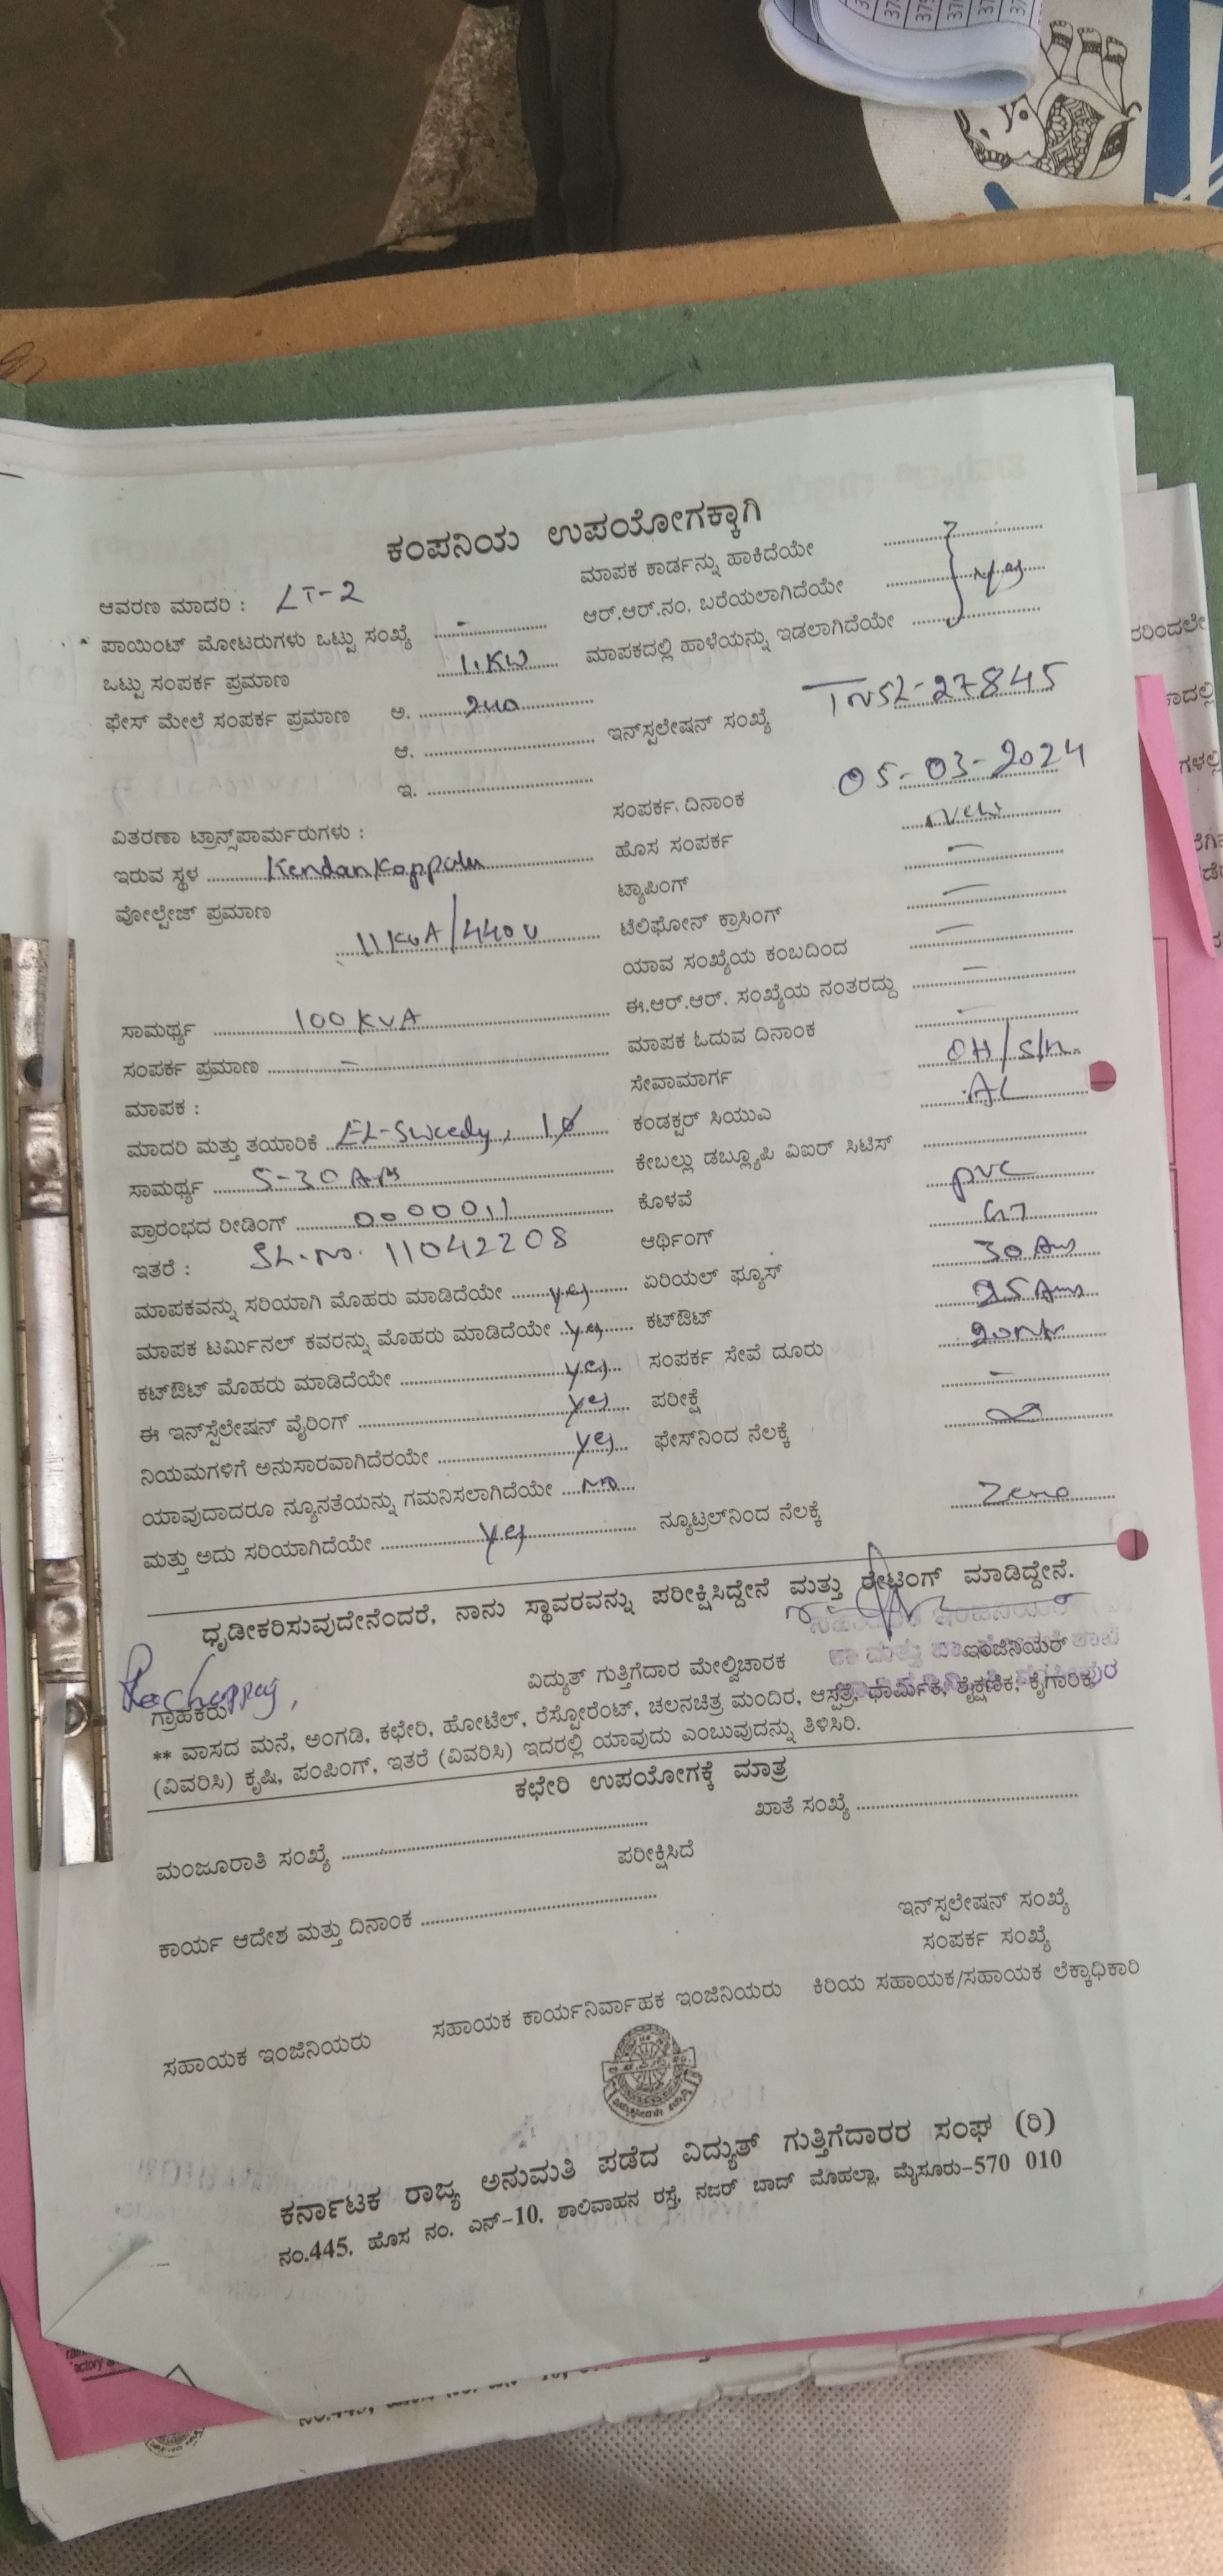 ಕಂಪನಿಯ ಉಪಯೋಗಕ್ಕಾಗಿ
ಆವರಣ ಮಾದರಿ : LT-2
ಮಾಪಕ ಕಾರ್ಡನ್ನು ಹಾಕಿದೆಯೇ
ಪಾಯಿಂಟ್ ಮೋಟರುಗಳು ಒಟ್ಟು ಸಂಖ್ಯೆ -
ಆರ್.ಆರ್.ನಂ. ಬರೆಯಲಾಗಿದೆಯೇ yes
ಒಟ್ಟು ಸಂಪರ್ಕ ಪ್ರಮಾಣ
ಮಾಪಕದಲ್ಲಿ ಹಾಳೆಯನ್ನು ಇಡಲಾಗಿದೆಯೇ
ಫೇಸ್ ಮೇಲೆ ಸಂಪರ್ಕ ಪ್ರಮಾಣ ಅ. 240
ಇನ್‌ಸ್ಪಲೇಷನ್ ಸಂಖ್ಯೆ TNSL-27845
ಆ.
ಇ.
ಸಂಪರ್ಕ ದಿನಾಂಕ 05-03-2024
ವಿತರಣಾ ಟ್ರಾನ್ಸ್‌ಪಾರ್ಮರುಗಳು :
ಹೊಸ ಸಂಪರ್ಕ new
ಇರುವ ಸ್ಥಳ KendanKoppalu
ಟ್ಯಾಪಿಂಗ್ -
ವೋಲ್ಟೇಜ್ ಪ್ರಮಾಣ 11KvA/440v
ಟೆಲಿಫೋನ್ ಕ್ರಾಸಿಂಗ್ -
ಯಾವ ಸಂಖ್ಯೆಯ ಕಂಬದಿಂದ -
ಸಾಮರ್ಥ್ಯ 100 KvA
ಈ.ಆರ್.ಆರ್. ಸಂಖ್ಯೆಯ ನಂತರದ್ದು -
ಸಂಪರ್ಕ ಪ್ರಮಾಣ -
ಮಾಪಕ ಓದುವ ದಿನಾಂಕ -
ಮಾಪಕ :
ಸೇವಾಮಾರ್ಗ OH/S/M.
ಮಾದರಿ ಮತ್ತು ತಯಾರಿಕೆ EL-Sweedy, 1Ø
ಕಂಡಕ್ಟರ್ ಸಿಯುಎ AL
ಸಾಮರ್ಥ್ಯ 5-30 Am
ಕೇಬಲ್ಲು ಡಬ್ಲ್ಯೂಪಿ ವಿಐರ್ ಸಿಟಿಸ್
ಪ್ರಾರಂಭದ ರೀಡಿಂಗ್ 0000011
ಕೊಳವೆ pvc
ಇತರೆ : SL.No. 11042208
ಆರ್ಥಿಂಗ್ GI
ಮಾಪಕವನ್ನು ಸರಿಯಾಗಿ ಮೊಹರು ಮಾಡಿದೆಯೇ yes
ಏರಿಯಲ್ ಫ್ಯೂಸ್ 30 Am
ಮಾಪಕ ಟರ್ಮಿನಲ್ ಕವರನ್ನು ಮೊಹರು ಮಾಡಿದೆಯೇ yes
ಕಟ್‌ಔಟ್ 25 Am
ಕಟ್‌ಔಟ್ ಮೊಹರು ಮಾಡಿದೆಯೇ yes
ಸಂಪರ್ಕ ಸೇವೆ ದೂರು 20mtr
ಈ ಇನ್‌ಸ್ಪೆಲೇಷನ್ ವೈರಿಂಗ್ yes
ಪರೀಕ್ಷೆ -
ನಿಯಮಗಳಿಗೆ ಅನುಸಾರವಾಗಿದೆರಯೇ yes
ಫೇಸ್‌ನಿಂದ ನೆಲಕ್ಕೆ
ಯಾವುದಾದರೂ ನ್ಯೂನತೆಯನ್ನು ಗಮನಿಸಲಾಗಿದೆಯೇ NO
ಮತ್ತು ಅದು ಸರಿಯಾಗಿದೆಯೇ yes
ನ್ಯೂಟ್ರಲ್‌ನಿಂದ ನೆಲಕ್ಕೆ Zero
ಧೃಡೀಕರಿಸುವುದೇನೆಂದರೆ, ನಾನು ಸ್ಥಾವರವನ್ನು ಪರೀಕ್ಷಿಸಿದ್ದೇನೆ ಮತ್ತು ರೇಟಿಂಗ್ ಮಾಡಿದ್ದೇನೆ.
ಗ್ರಾಹಕರು
ವಿದ್ಯುತ್ ಗುತ್ತಿಗೆದಾರ ಮೇಲ್ವಿಚಾರಕ
ಇಂಜಿನಿಯರ್
** ವಾಸದ ಮನೆ, ಅಂಗಡಿ, ಕಛೇರಿ, ಹೋಟೆಲ್, ರೆಸ್ಟೋರೆಂಟ್, ಚಲನಚಿತ್ರ ಮಂದಿರ, ಆಸ್ಪತ್ರೆ, ಧಾರ್ಮಿಕ, ಶೈಕ್ಷಣಿಕ, ಕೈಗಾರಿಕ,
(ವಿವರಿಸಿ) ಕೃಷಿ, ಪಂಪಿಂಗ್, ಇತರೆ (ವಿವರಿಸಿ) ಇದರಲ್ಲಿ ಯಾವುದು ಎಂಬುವುದನ್ನು ತಿಳಿಸಿರಿ.
ಕಛೇರಿ ಉಪಯೋಗಕ್ಕೆ ಮಾತ್ರ
ಮಂಜೂರಾತಿ ಸಂಖ್ಯೆ
ಖಾತೆ ಸಂಖ್ಯೆ
ಪರೀಕ್ಷಿಸಿದೆ
ಕಾರ್ಯ ಆದೇಶ ಮತ್ತು ದಿನಾಂಕ
ಇನ್‌ಸ್ಪಲೇಷನ್ ಸಂಖ್ಯೆ
ಸಂಪರ್ಕ ಸಂಖ್ಯೆ
ಸಹಾಯಕ ಇಂಜಿನಿಯರು ಸಹಾಯಕ ಕಾರ್ಯನಿರ್ವಾಹಕ ಇಂಜಿನಿಯರು ಕಿರಿಯ ಸಹಾಯಕ/ಸಹಾಯಕ ಲೆಕ್ಕಾಧಿಕಾರಿ
ಕರ್ನಾಟಕ ರಾಜ್ಯ ಅನುಮತಿ ಪಡೆದ ವಿದ್ಯುತ್ ಗುತ್ತಿಗೆದಾರರ ಸಂಘ (ರಿ)
ನಂ.445, ಹೊಸ ನಂ. ಎನ್-10, ಶಾಲಿವಾಹನ ರಸ್ತೆ, ನಜರ್ ಬಾದ್ ಮೊಹಲ್ಲಾ, ಮೈಸೂರು-570 010